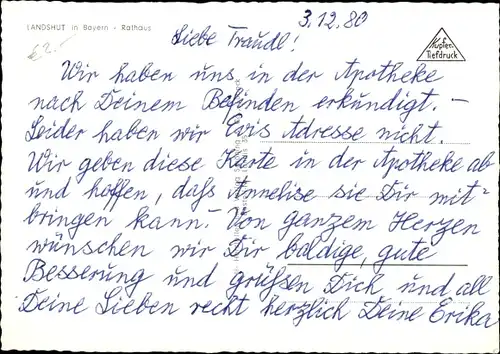 3.12.80
LANDSHUT in Bayern - Rathaus
Kupfer-
Tiefdruck
€2.-
Liebe Traudl!
Wir haben uns in der Apotheke
nach Deinem Befinden erkundigt. -
Leider haben wir Evis Adresse nicht.
Wir geben diese Karte in der Apotheke ab
und hoffen, daß Annelise sie Dir mit-
bringen kann. - Von ganzem Herzen
wünschen wir Dir baldige, gute
Besserung und grüßen Dich und all
Deine Lieben recht herzlich Deine Erika